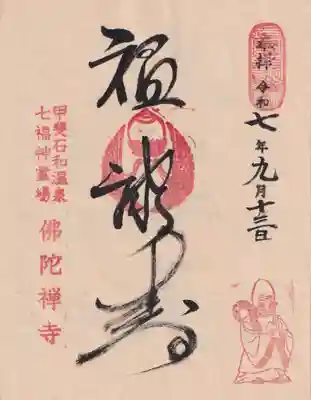 奉拝
令和七年九月十三日
福禄寿
甲斐石和温泉
七福神霊場
佛陀禅寺